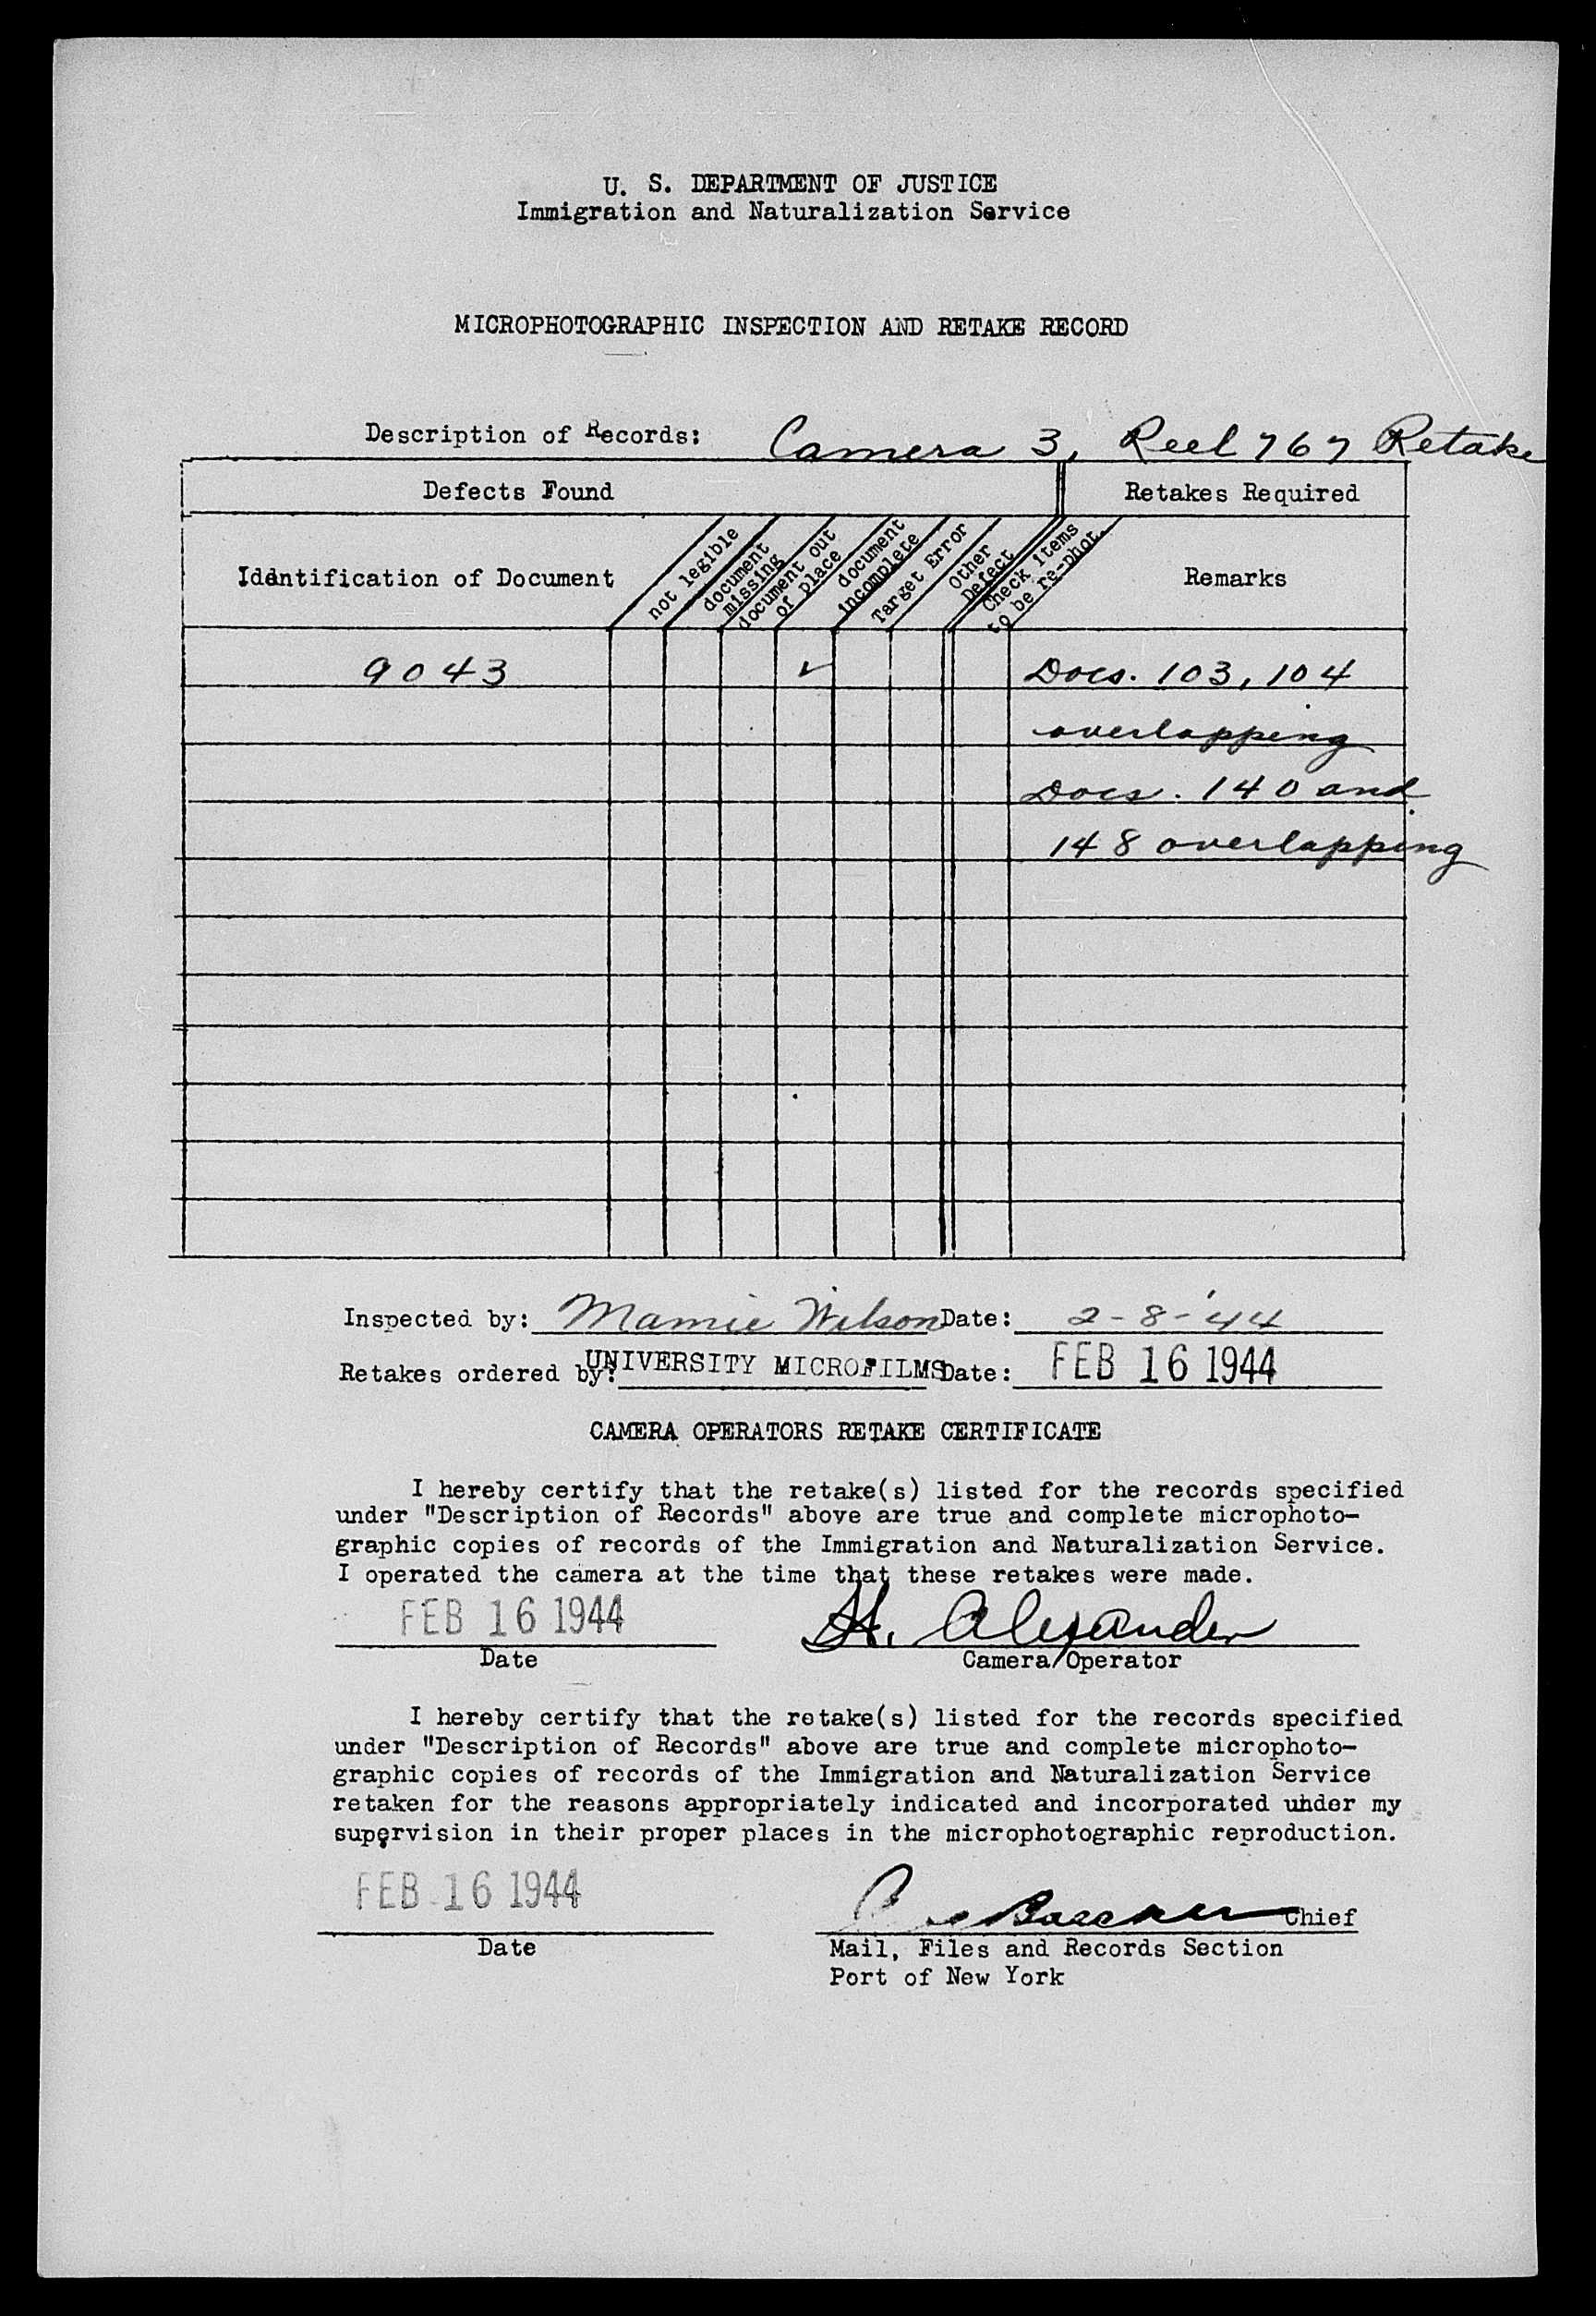 U. S. DEPARTMENT OF JUSTICE
Immigration and Naturalization Service
MICROPHOTOGRAPHIC INSPECTION AND RETAKE RECORD
Description of Records: Camera 3, Reel 767 Retake
Defects Found
Retakes Required
Identification of Document
not legible
document missing
document out of place
document incomplete
Target Error
Other Defect
Check items to be re-phot.
Remarks
9043 ✓ Docs. 103, 104
overlapping
Docs. 140 and
148 overlapping
Inspected by: Mamie Wilson Date: 2-8-'44
Retakes ordered by: UNIVERSITY MICROFILMS Date: FEB 16 1944
CAMERA OPERATORS RETAKE CERTIFICATE
I hereby certify that the retake(s) listed for the records specified
under "Description of Records" above are true and complete microphoto-
graphic copies of records of the Immigration and Naturalization Service.
I operated the camera at the time that these retakes were made.
FEB 16 1944 H. Alexander
Date Camera Operator
I hereby certify that the retake(s) listed for the records specified
under "Description of Records" above are true and complete microphoto-
graphic copies of records of the Immigration and Naturalization Service
retaken for the reasons appropriately indicated and incorporated uhder my
supervision in their proper places in the microphotographic reproduction.
FEB 16 1944 Chief
Date Mail, Files and Records Section
Port of New York